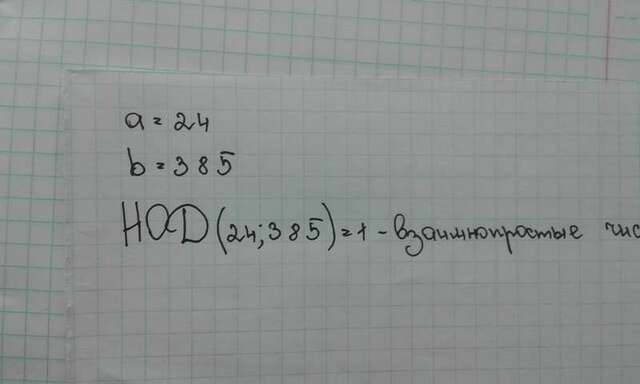 a = 24
b = 385
НОД (24; 385) = 1 - взаимнопростые чис